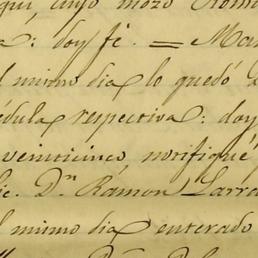 aquí, cuyo mozo
a: doy fé. = Mar
l mismo dia lo quedó
édula respectiva: doy
veinticinco notifiqué
ic. Dⁿ Ramon Larra
l mismo dia enterado